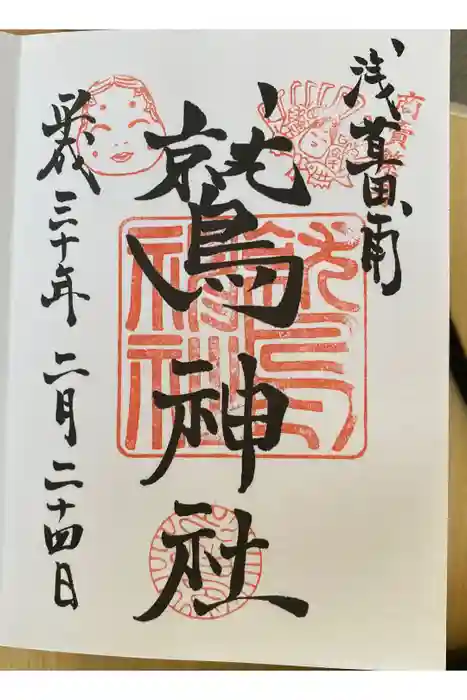 浅草田甫
鷲神社
平成三十年二月二十四日